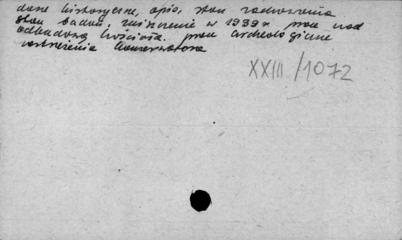 dane historyczne, opis, stan zachowania
stan badań, zniszczenie w 1939 r. prace nad
odbudową kościoła. prace archeologiczne
zastrzeżenia konserwatora
XXIII/1072